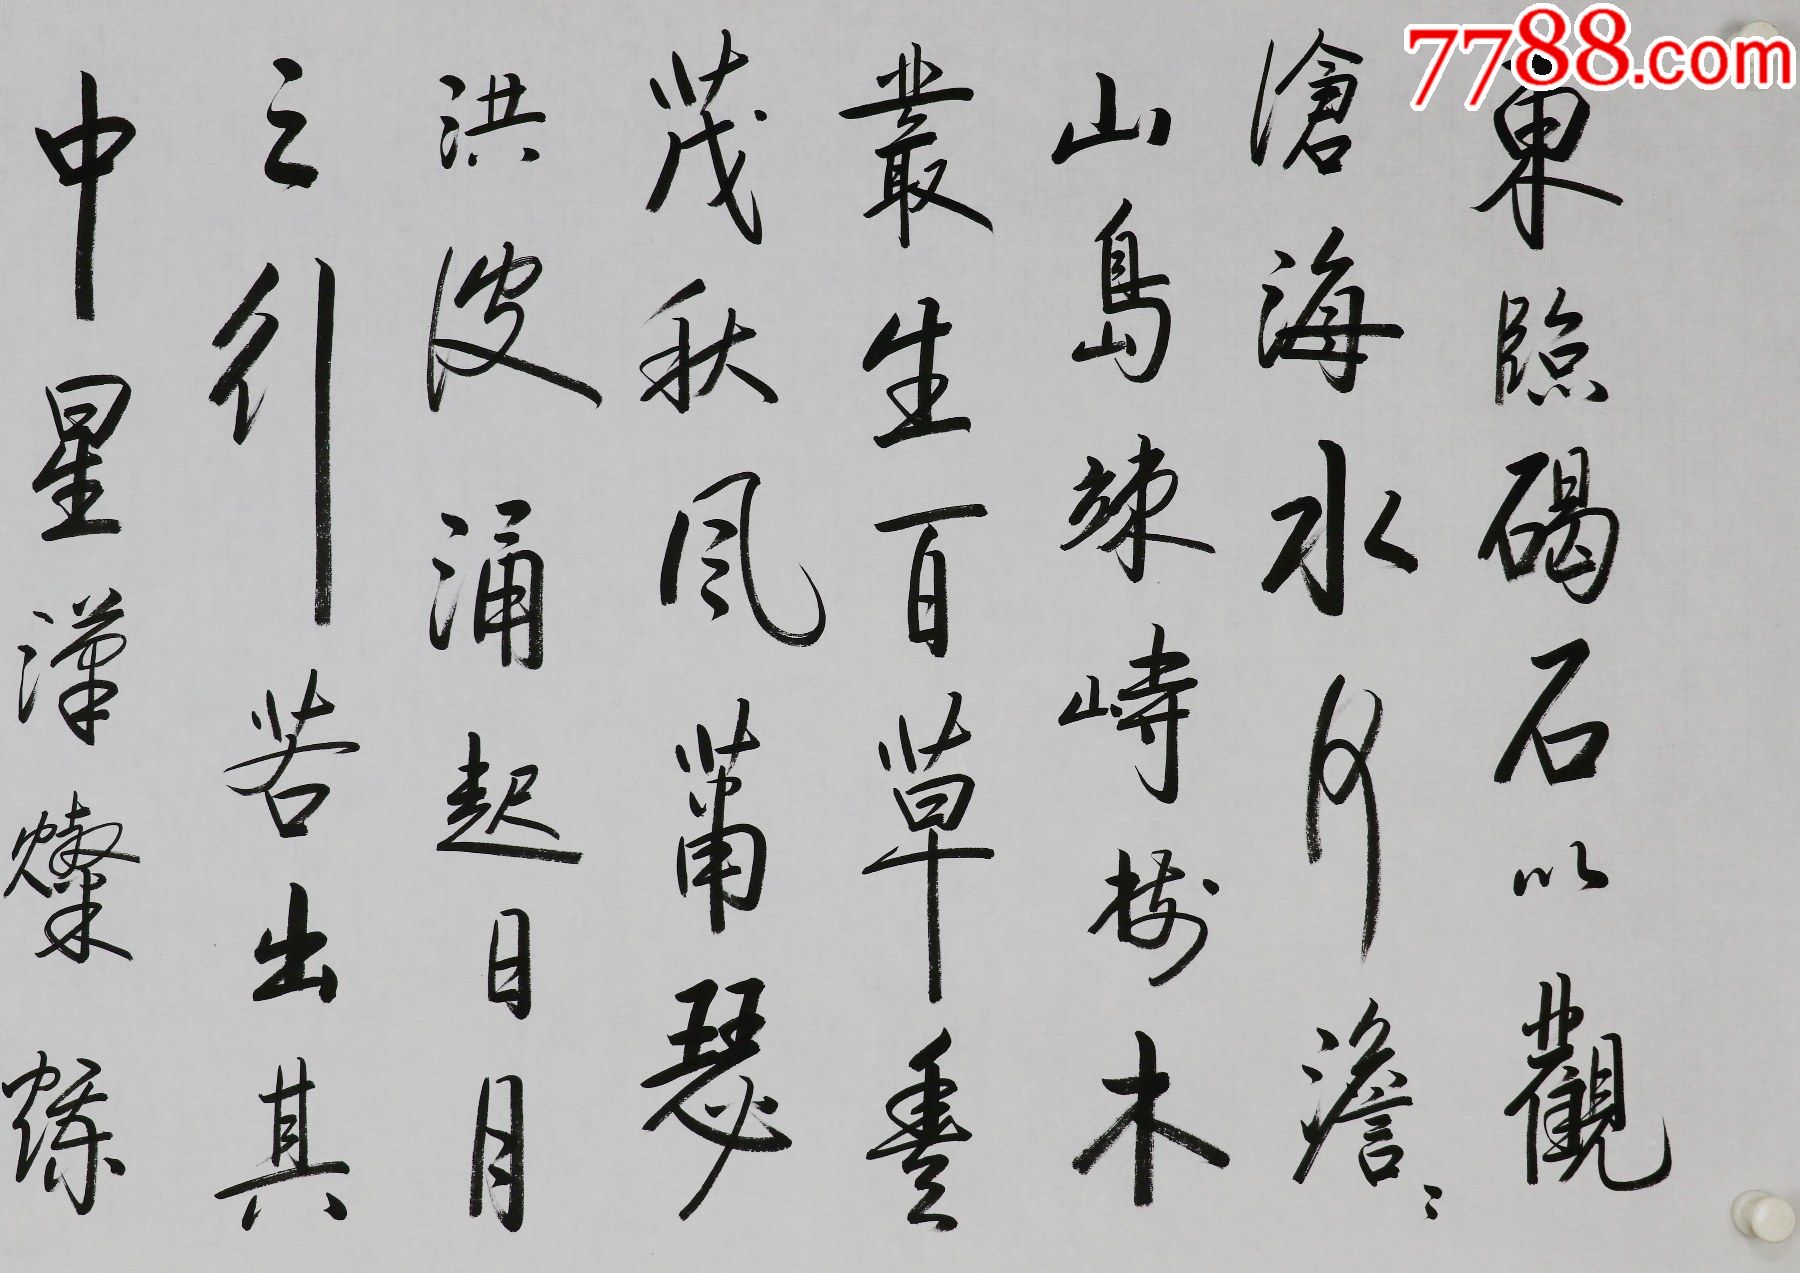 7788.com
東臨碣石以觀
滄海水何澹〻
山島竦峙樹木
叢生百草豐
茂秋風蕭瑟
洪波涌起日月
之行若出其
中星漢燦爛